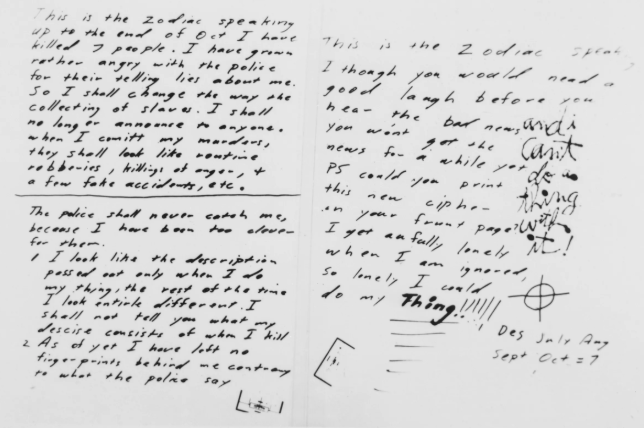 This is the Zodiac speaking
up to the end of Oct I have
killed 7 people. I have grown
rather angry with the police
for their telling lies about me.
So I shall change the way the
collecting of slaves. I shall
no longer announce to anyone.
when I comitt my murders,
they shall look like routine
robberies, killings of anger, +
a few fake accidents, etc.
The police shall never catch me,
because I have been too clever
for them.
1 I look like the description
passed out only when I do
my thing, the rest of the time
I look entirle different. I
shall not tell you what my
descise consists of when I kill
2 As of yet I have left no
fingerprints behind me contrary
to what the police say
This is the Zodiac speak
I though you would need a
good laugh before you
hear the bad news
you won't get the
news for a while yet
PS could you print
this new cipher
in your frunt page?
I get awfully lonely
when I am ignored,
So lonely I could
do my Thing!!!!!!
and i
Can't
do a
thing
with
it!
Des July Aug
Sept Oct = 7